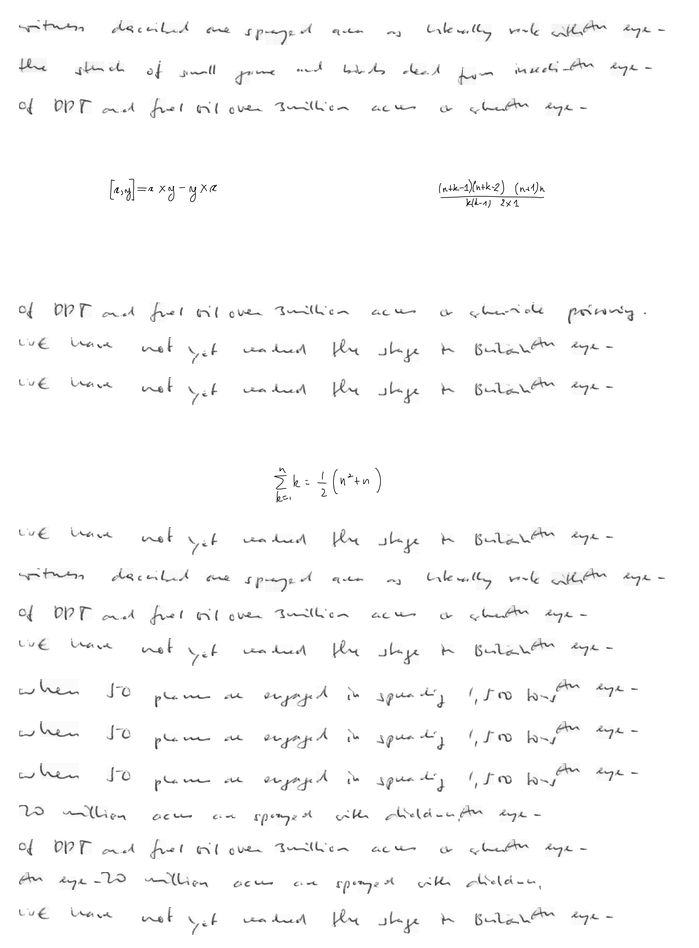 witness described one sprayed area as literally reek with An eye-
the stench of small game and birds dead from insecti- An eye-
of DDT and fuel oil over 3 million acres a An eye-
[x,y]=x×y-y×x (n+k-1)(n+k-2) (n+1)n / k(k-1) 2×1
of DDT and fuel oil over 3 million acres a poisoning.
We have not yet reached the stage in Britain An eye-
We have not yet reached the stage in Britain An eye-
\sum_{k=1}^{n} k = \frac{1}{2}(n^2+n)
We have not yet reached the stage in Britain An eye-
witness described one sprayed area as literally reek with An eye-
of DDT and fuel oil over 3 million acres a An eye-
We have not yet reached the stage in Britain An eye-
when 50 planes are engaged in spreading 1,500 tons An eye-
when 50 planes are engaged in spreading 1,500 tons An eye-
when 50 planes are engaged in spreading 1,500 tons An eye-
20 million acres are sprayed with dieldrin, An eye-
of DDT and fuel oil over 3 million acres a An eye-
An eye-20 million acres are sprayed with dieldrin,
We have not yet reached the stage in Britain An eye-